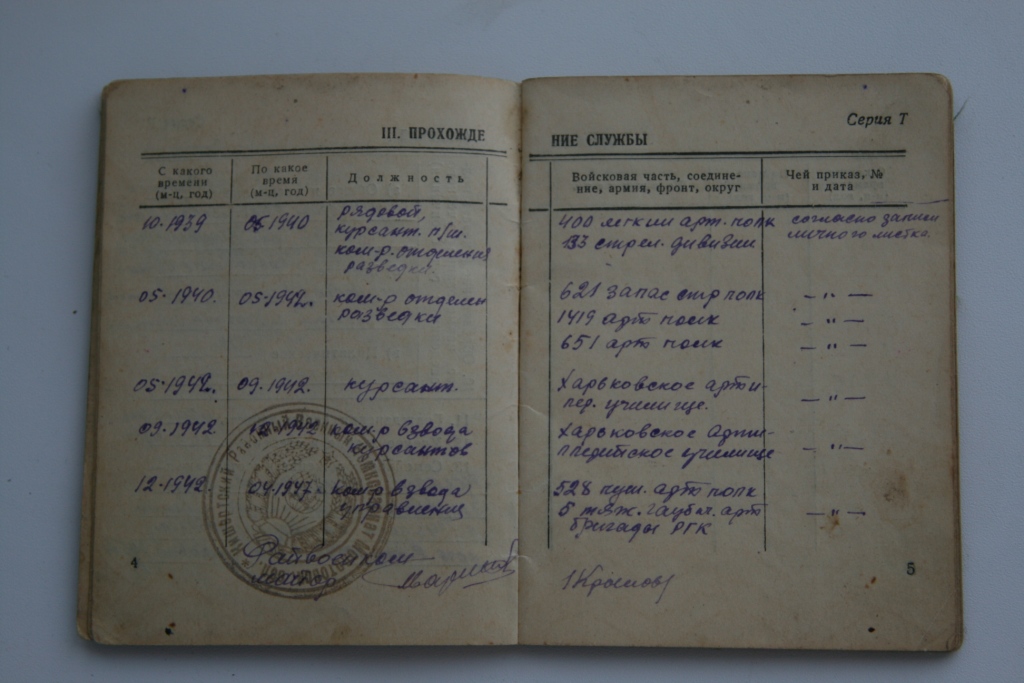 III. ПРОХОЖДЕ
НИЕ СЛУЖБЫ
Серия Т
С какого времени (м-ц, год)
По какое время (м-ц, год)
Должность
Войсковая часть, соедине-
ние, армия, фронт, округ
Чей приказ, № и дата
10.1939 05.1940 рядовой, 400 легкий арт. полк согласно записи
курсант п/ш. 133 стрел. дивизии личного листка.
ком-р. отделения
разведки.
05.1940. 05.1942. ком-р отделен 621 запас стр полк — " —
разведки 1419 арт полк — " —
651 арт полк — " —
05.1942. 09.1942. курсант. Харьковское арти-
лер. училище. — " —
09.1942 ком-р взвода Харьковское
курсантов училище — " —
12.1942. 04.1947. ком-р взвода 528 пуш. арт полк
управления 5 тяж. гаубич. арт — " —
бригады РГК
Райвоенком
майор
4
5